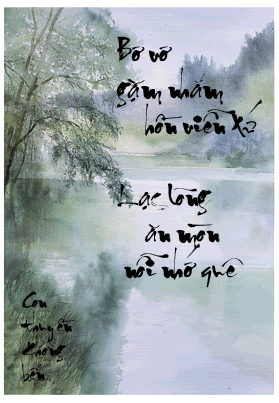 Bơ vơ
gặm nhấm
hồn viễn xứ
Lạc lõng
ăn mòn
nỗi nhớ quê
Con
thuyền
không
bến...